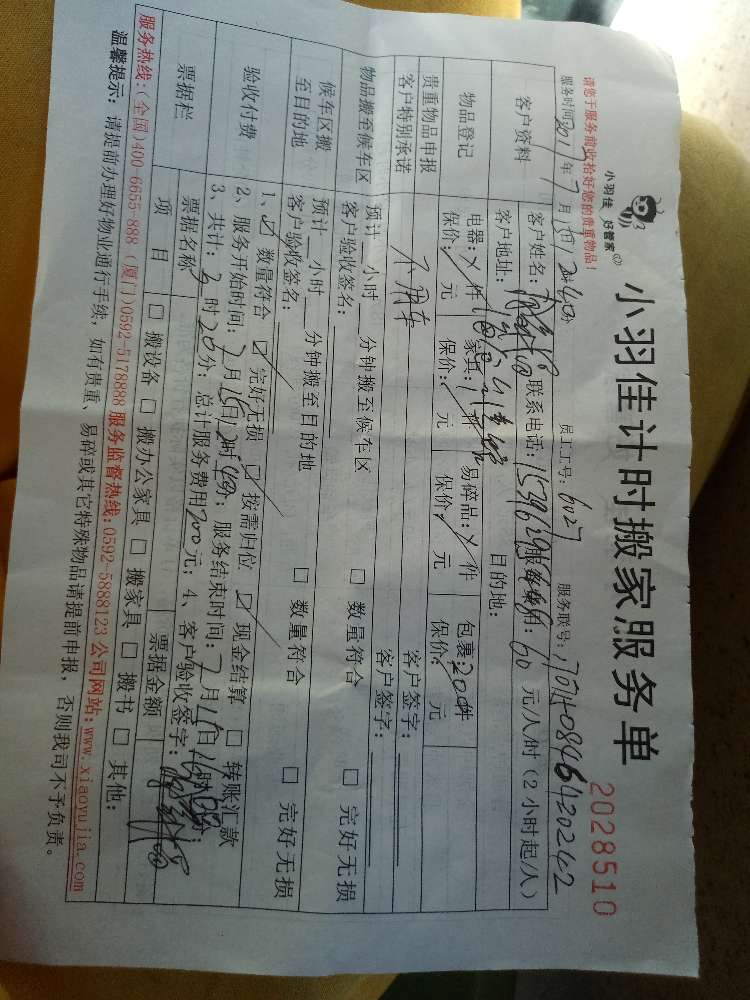 小羽佳 好管家
小羽佳计时搬家服务单
2028510
请您于服务前收拾好您的贵重物品!
服务时间: 年7月15日 员工工号:6027 服务联号:
客户资料
客户姓名: 联系电话: 服务费用:60元/小时(2小时起/人)
客户地址: 目的地:
物品登记
电器: 件 家具: 件 易碎品: 件 包裹:200件
保价: 元 保价: 元 保价: 元 保价: 元
贵重物品申报 客户签字:
客户特别承诺 不用车 客户签字:
物品搬至候车区
预计 小时 分钟搬至候车区 □ 数量符合 □ 完好无损
客户验收签名:
候车区搬至目的地
预计 小时 分钟搬至目的地 □ 数量符合 □ 完好无损
客户验收签名:
验收付费
1、☑ 数量符合 ☑ 完好无损 ☑ 按需归位 ☑ 现金结算 □ 转账汇款
2、服务开始时间:7月15日12时40分;服务结束时间:7月15日 时 分;
3、共计:3时20分;总计服务费用200元;4、客户验收签字:
票据栏
票据名称 票据金额
项目 □ 搬设备 □ 搬办公家具 □ 搬家具 □ 搬书 □ 其他:
服务热线:(全国)400-6655-888 (厦门)0592-5178888 服务监督热线:0592-5888123 公司网站:www.xiaoyujia.com
温馨提示: 请提前办理好物业通行手续,如有贵重、易碎或其它特殊物品请提前申报,否则我司不予负责。